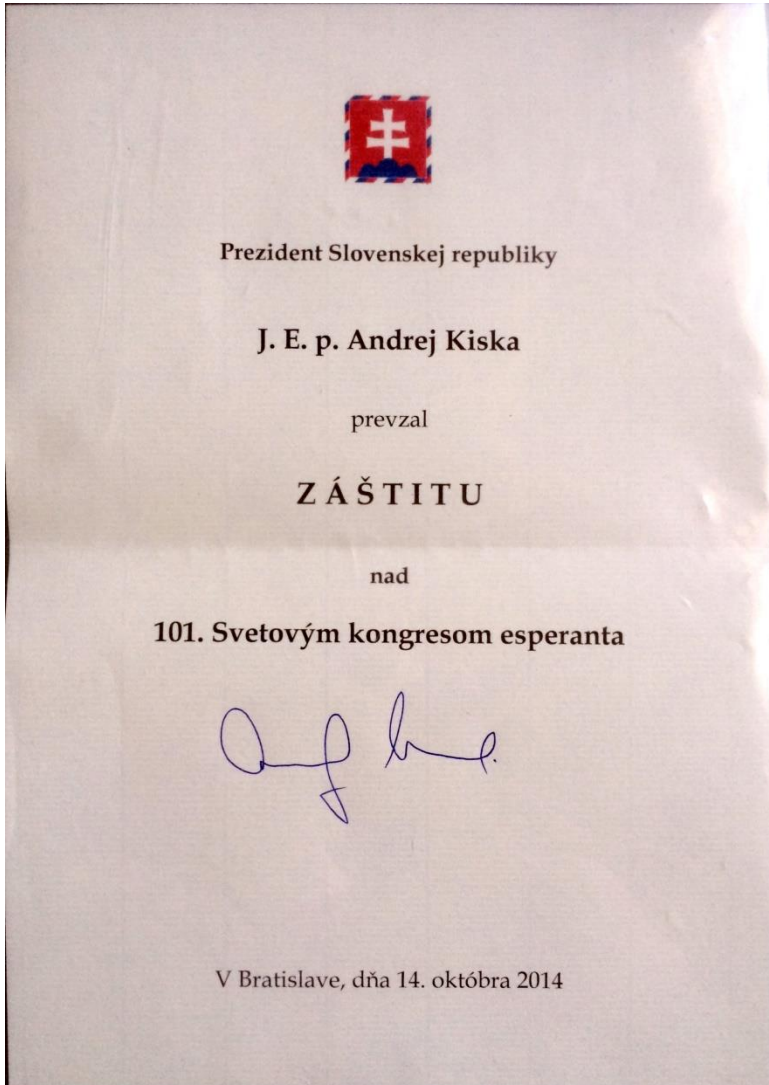 Prezident Slovenskej republiky
J. E. p. Andrej Kiska
prevzal
ZÁŠTITU
nad
101. Svetovým kongresom esperanta
V Bratislave, dňa 14. októbra 2014